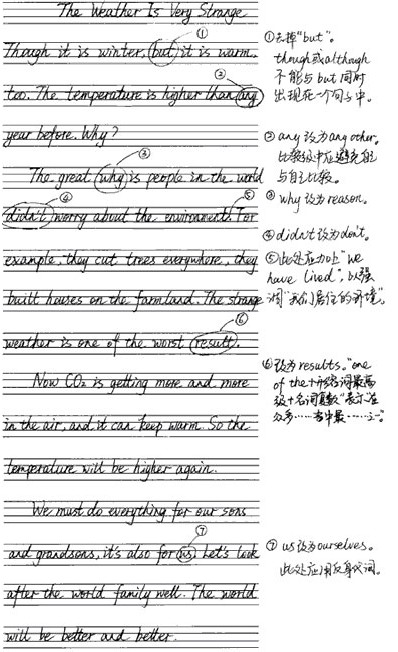 The Weather Is Very Strange
①
Though it is winter, but it is warm,
②
too. The temperature is higher than any
year before. Why?
③
The great why is people in the world
④ ⑤
didn't worry about the environment. For
example, they cut trees everywhere, they
built houses on the farmland. The strange
⑥
weather is one of the worst result.
Now CO₂ is getting more and more
in the air, and it can keep warm. So the
temperature will be higher again.
We must do everything for our sons
⑦
and grandsons, it's also for us. Let's look
after the world family well. The world
will be better and better.
①去掉"but"。
though或although
不能与but同时
出现在一个句子中。
②any改为any other。
比较级中应避免
与自己比较。
③why改为reason。
④didn't改为don't。
⑤此处应加上"we
have lived",以强
调"我们居住的环境"。
⑥改为results。"one
of the+形容词最高
级+名词复数"表示"在
众多……当中最……之一"。
⑦us改为ourselves。
此处应用反身代词。